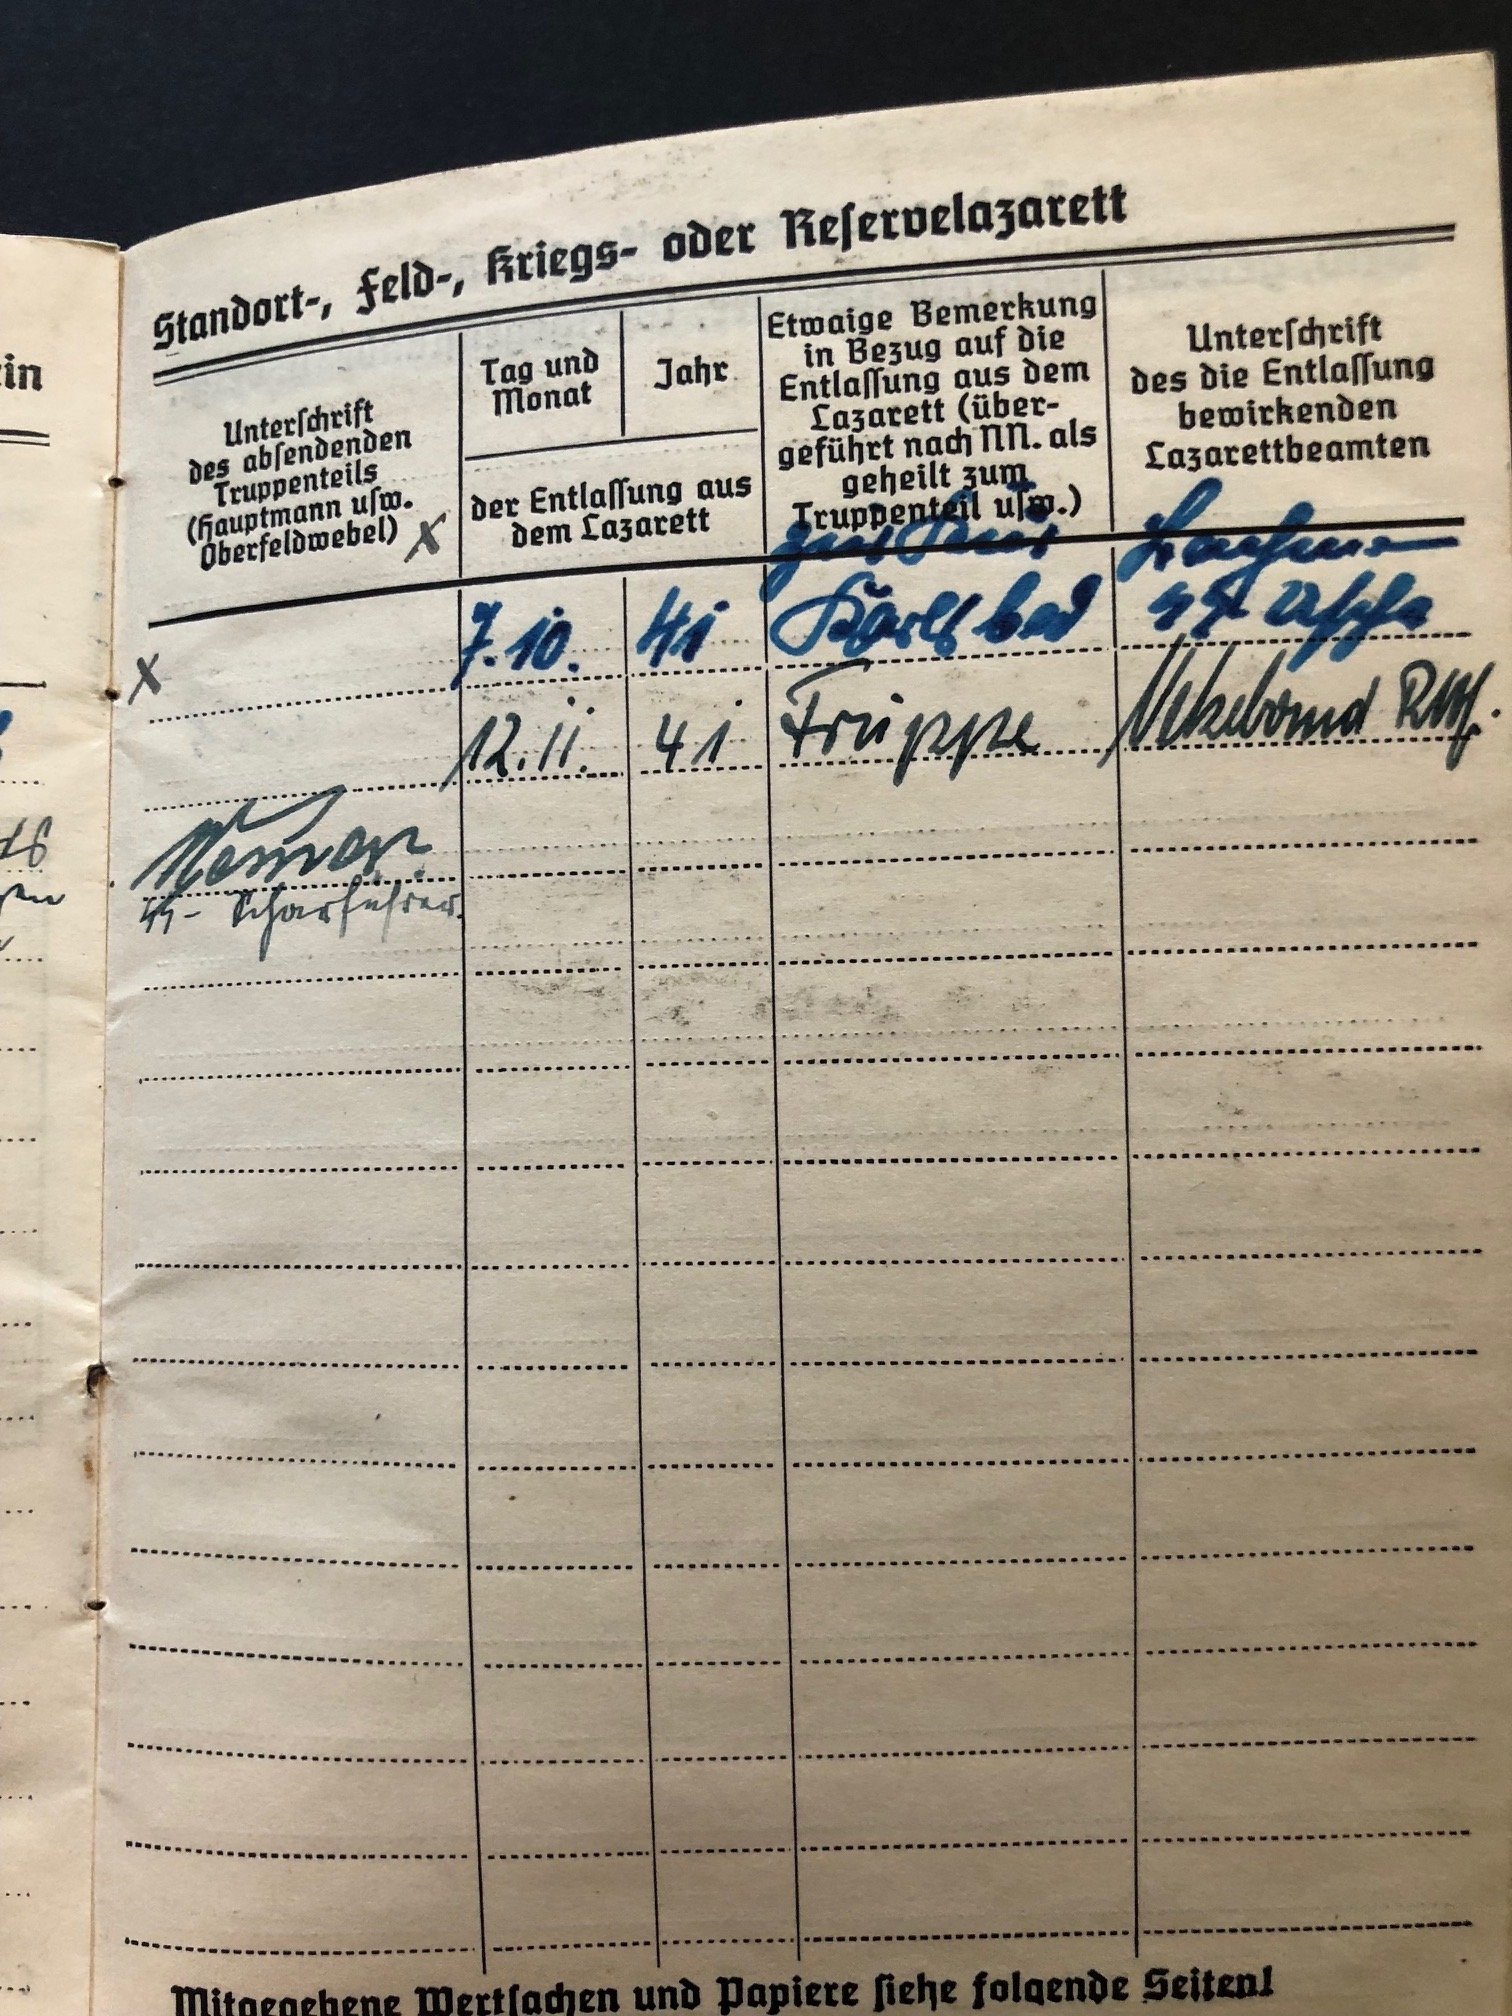 in
Standort-, Feld-, Kriegs- oder Reservelazarett
Unterschrift
des absendenden
Truppenteils
(Hauptmann usw.
Oberfeldwebel) x
Tag und
Monat
Jahr
der Entlassung aus
dem Lazarett
Etwaige Bemerkung
in Bezug auf die
Entlassung aus dem
Lazarett (über-
geführt nach NN. als
geheilt zum
Truppenteil usw.)
Unterschrift
des die Entlassung
bewirkenden
Lazarettbeamten
x
7.10. 41 Karlsbad
12.11. 41 Truppe
SS-Scharführer.
Mitgegebene Wertsachen und Papiere siehe folgende Seiten!